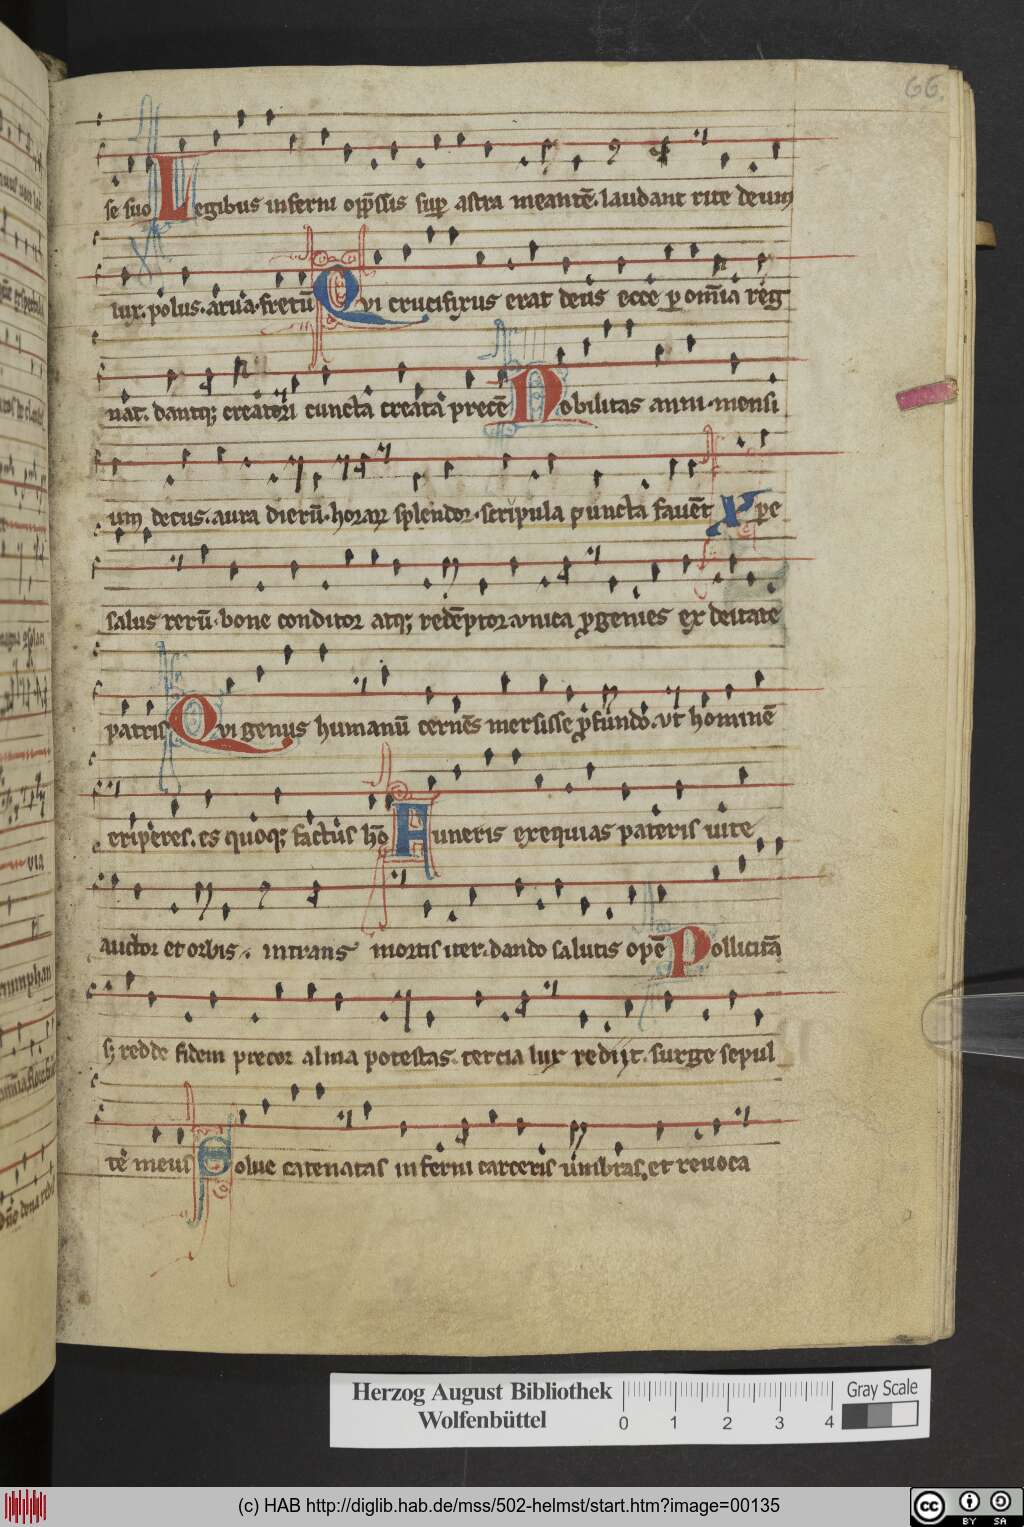 66.
se suo Legibus inferni opp̄ssis sup̄ astra meantē. laudant rite deum
lux. polus. arua. fretū Qvi crucifixus erat deus ecce p om̄ia reg
nat. dantq; creatori cuncta creata precē Nobilitas anni. mensi
um decus. aura dierū. horaꝝ splendor. scripula puncta fauēt Xp̄e
salus rerū. bone conditor atq; redēptor. vnica ꝓgenies ex deitate
patris Qvi genus humanū cernēs mersisse ꝓfundo. vt hominē
eriperes. es quoq; factus hō Funeris exequias pateris uite
auctor et orbis. intrans mortis iter. dando salutis opē Pollicitā
sꝫ redde fidem precor alma potestas. tercia lux redijt. surge sepul
te meus Solue catenatas inferni carceris umbras, et reuoca
Herzog August Bibliothek
Wolfenbüttel
0 1 2 3 4
Gray Scale
(c) HAB http://diglib.hab.de/mss/502-helmst/start.htm?image=00135
cc BY SA